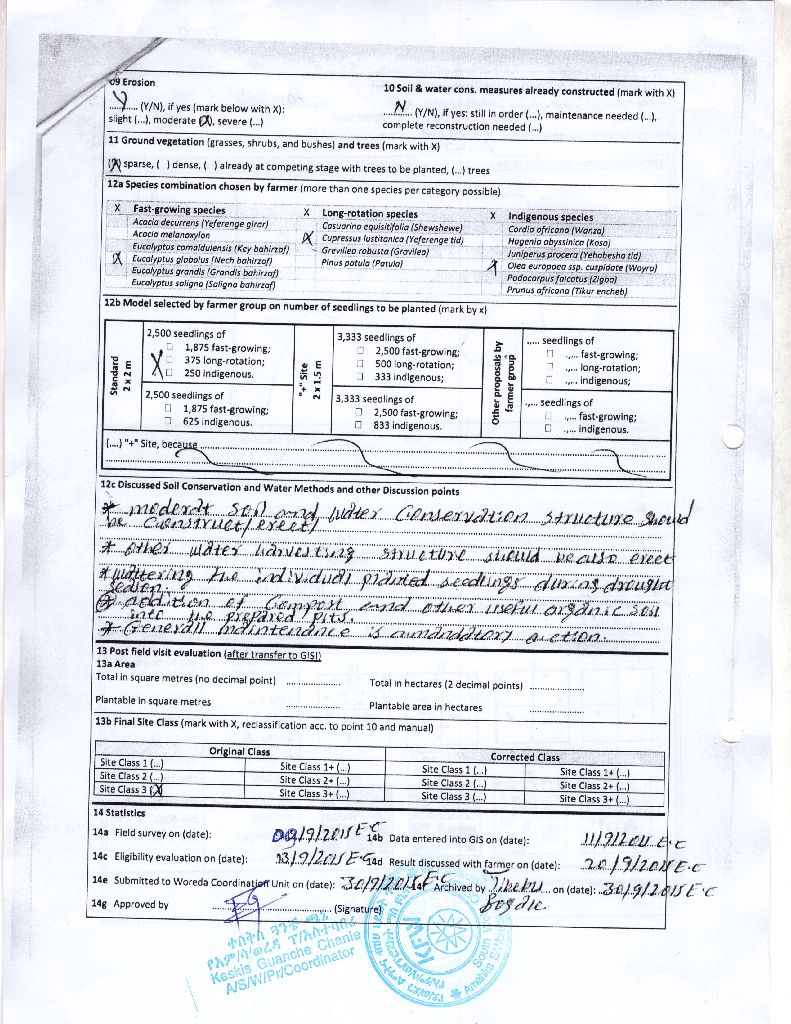 09 Erosion
Y (Y/N), if yes (mark below with X):
slight (...), moderate (X), severe (...)
10 Soil & water cons. measures already constructed (mark with X)
N (Y/N), if yes: still in order (...), maintenance needed (...),
complete reconstruction needed (...)
11 Ground vegetation (grasses, shrubs, and bushes) and trees (mark with X)
(X) sparse, ( ) dense, ( ) already at competing stage with trees to be planted, (...) trees
12a Species combination chosen by farmer (more than one species per category possible)
X Fast-growing species
Acacia decurrens (Yeferenge girar)
Acacia melanoxylon
Eucalyptus camaldulensis (Key bahirzaf)
X Eucalyptus globolus (Nech bahirzaf)
Eucalyptus grandis (Grandis bahirzaf)
Eucalyptus saligna (Saligna bahirzaf)
X Long-rotation species
Casuarina equisitifolia (Shewshewe)
X Cupressus lusitanica (Yeferenge tid)
Grevillea robusta (Gravilea)
Pinus patula (Patula)
X Indigenous species
Cordia africana (Wanza)
Hagenia abyssinica (Koso)
Juniperus procera (Yehabesha tid)
X Olea europaea ssp. cuspidate (Wayra)
Podocarpus falcatus (Zigba)
Prunus africana (Tikur encheb)
12b Model selected by farmer group on number of seedlings to be planted (mark by x)
Standard
2 x 2 m
2,500 seedlings of
1,875 fast-growing;
X 375 long-rotation;
250 indigenous.
2,500 seedlings of
1,875 fast-growing;
625 indigenous.
"+" Site
2 x 1.5 m
3,333 seedlings of
2,500 fast-growing;
500 long-rotation;
333 indigenous;
3,333 seedlings of
2,500 fast-growing;
833 indigenous.
Other proposals by
farmer group
.,... seedlings of
.,... fast-growing;
.,... long-rotation;
.,... indigenous;
.,... seedlings of
.,... fast-growing;
.,... indigenous.
(....) "+" Site, because
12c Discussed Soil Conservation and Water Methods and other Discussion points
* moderat soil and water conservation structure should
be construct/erect/
* other water harvesting structure should be also erect
* wattering the individual planted seedlings during drought
season.
* addition of compost and other useful organic soil
into the prepared pits.
* Generall maintenance is a mandatory action.
13 Post field visit evaluation (after transfer to GIS!)
13a Area
Total in square metres (no decimal point) ............... Total in hectares (2 decimal points) ...............
Plantable in square metres ............... Plantable area in hectares ...............
13b Final Site Class (mark with X, reclassification acc. to point 10 and manual)
Original Class Corrected Class
Site Class 1 (...) Site Class 1+ (...) Site Class 1 (...) Site Class 1+ (...)
Site Class 2 (...) Site Class 2+ (...) Site Class 2 (...) Site Class 2+ (...)
Site Class 3 (X) Site Class 3+ (...) Site Class 3 (...) Site Class 3+ (...)
14 Statistics
14a Field survey on (date): 09/9/2015 E.C 14b Data entered into GIS on (date): 11/9/2015 E.C
14c Eligibility evaluation on (date): 13/9/2015 E.C 14d Result discussed with farmer on (date): 20/9/2015 E.C
14e Submitted to Woreda Coordination Unit on (date): 30/9/2015 E.C 14f Archived by on (date): 30/9/2015 E.C
14g Approved by (Signature)
Keskis Guanche Chanie
A/S/W/Pr/Coordinator
KFW
South
Amahra